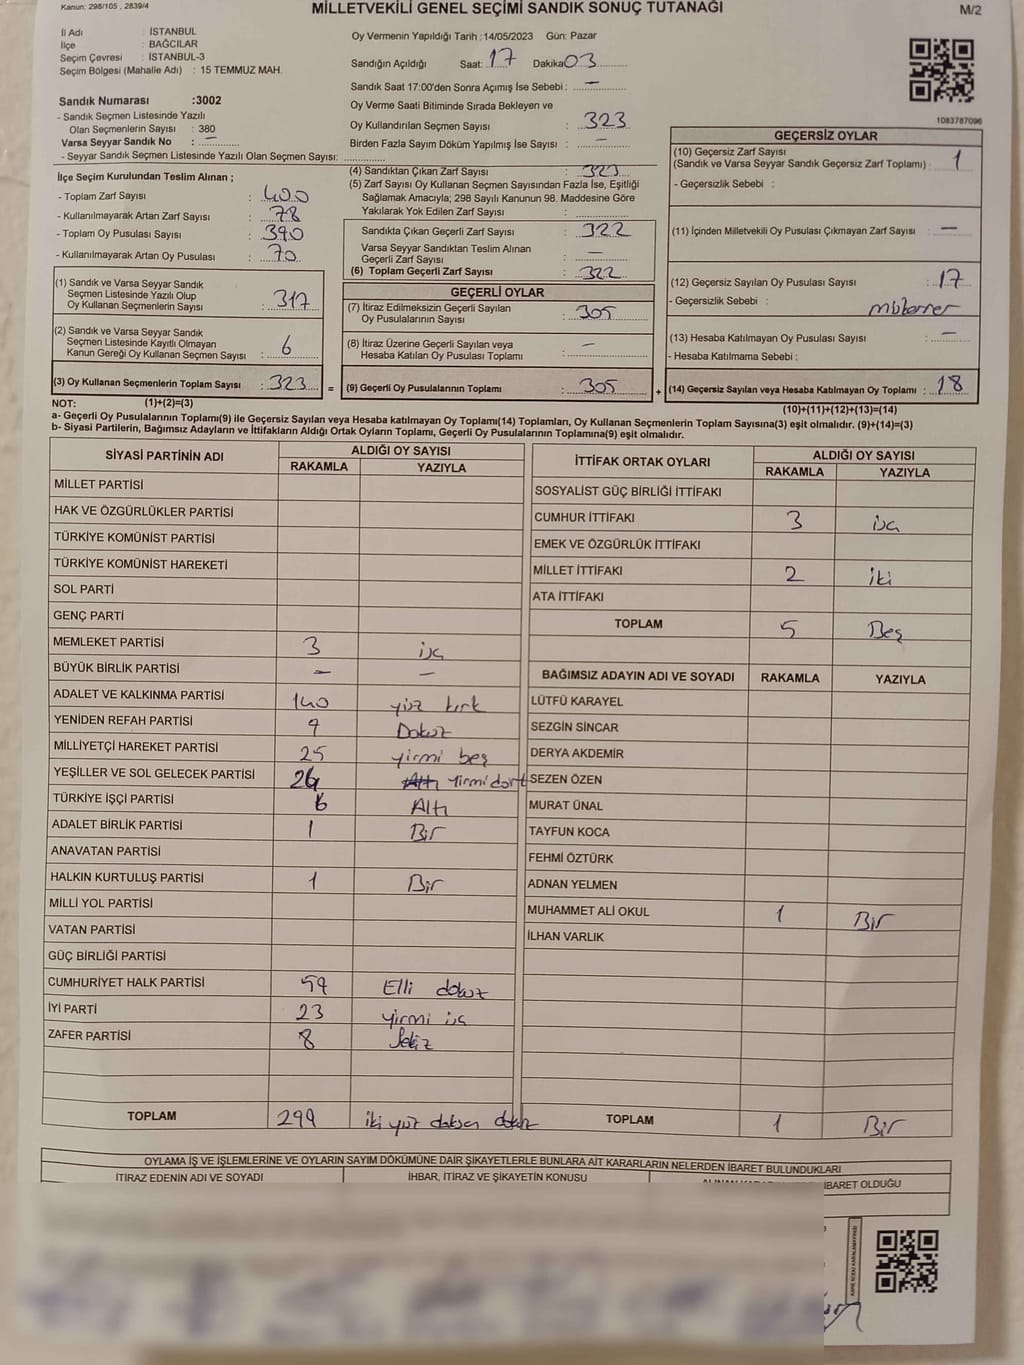 Kanun: 298/105 , 2839/4
MİLLETVEKİLİ GENEL SEÇİMİ SANDIK SONUÇ TUTANAĞI
M/2
İl Adı : İSTANBUL
İlçe : BAĞCILAR
Seçim Çevresi : İSTANBUL-3
Seçim Bölgesi (Mahalle Adı) : 15 TEMMUZ MAH.
Sandık Numarası :3002
- Sandık Seçmen Listesinde Yazılı
Olan Seçmenlerin Sayısı : 380
Varsa Seyyar Sandık No : —
- Seyyar Sandık Seçmen Listesinde Yazılı Olan Seçmen Sayısı:
İlçe Seçim Kurulundan Teslim Alınan ;
- Toplam Zarf Sayısı : 400
- Kullanılmayarak Artan Zarf Sayısı : 78
- Toplam Oy Pusulası Sayısı : 390
- Kullanılmayarak Artan Oy Pusulası : 70
(1) Sandık ve Varsa Seyyar Sandık
Seçmen Listesinde Yazılı Olup
Oy Kullanan Seçmenlerin Sayısı : 317
(2) Sandık ve Varsa Seyyar Sandık
Seçmen Listesinde Kayıtlı Olmayan
Kanun Gereği Oy Kullanan Seçmen Sayısı : 6
(3) Oy Kullanan Seçmenlerin Toplam Sayısı : 323 =
Oy Vermenin Yapıldığı Tarih :14/05/2023 Gün: Pazar
Sandığın Açıldığı Saat: 17 Dakika 03
Sandık Saat 17:00'den Sonra Açımış İse Sebebi : —
Oy Verme Saati Bitiminde Sırada Bekleyen ve
Oy Kullandırılan Seçmen Sayısı : 323
Birden Fazla Sayım Döküm Yapılmış İse Sayısı : —
(4) Sandıktan Çıkan Zarf Sayısı : 323
(5) Zarf Sayısı Oy Kullanan Seçmen Sayısından Fazla İse, Eşitliği
Sağlamak Amacıyla; 298 Sayılı Kanunun 98. Maddesine Göre
Yakılarak Yok Edilen Zarf Sayısı :
Sandıkta Çıkan Geçerli Zarf Sayısı : 322
Varsa Seyyar Sandıktan Teslim Alınan
Geçerli Zarf Sayısı : —
(6) Toplam Geçerli Zarf Sayısı : 322
GEÇERLİ OYLAR
(7) İtiraz Edilmeksizin Geçerli Sayılan
Oy Pusulalarının Sayısı : 305
(8) İtiraz Üzerine Geçerli Sayılan veya
Hesaba Katılan Oy Pusulası Toplamı : —
(9) Geçerli Oy Pusulalarının Toplamı : 305 +
1083787096
GEÇERSİZ OYLAR
(10) Geçersiz Zarf Sayısı
(Sandık ve Varsa Seyyar Sandık Geçersiz Zarf Toplamı) : 1
- Geçersizlik Sebebi :
(11) İçinden Milletvekili Oy Pusulası Çıkmayan Zarf Sayısı : —
(12) Geçersiz Sayılan Oy Pusulası Sayısı : 17
- Geçersizlik Sebebi :
(13) Hesaba Katılmayan Oy Pusulası Sayısı : —
- Hesaba Katılmama Sebebi :
(14) Geçersiz Sayılan veya Hesaba Katılmayan Oy Toplamı : 18
NOT: (1)+(2)=(3) (10)+(11)+(12)+(13)=(14)
a- Geçerli Oy Pusulalarının Toplamı(9) ile Geçersiz Sayılan veya Hesaba katılmayan Oy Toplamı(14) Toplamları, Oy Kullanan Seçmenlerin Toplam Sayısına(3) eşit olmalıdır. (9)+(14)=(3)
b- Siyasi Partilerin, Bağımsız Adayların ve İttifakların Aldığı Ortak Oyların Toplamı, Geçerli Oy Pusulalarının Toplamına(9) eşit olmalıdır.
SİYASİ PARTİNİN ADI ALDIĞI OY SAYISI
RAKAMLA YAZIYLA
MİLLET PARTİSİ
HAK VE ÖZGÜRLÜKLER PARTİSİ
TÜRKİYE KOMÜNİST PARTİSİ
TÜRKİYE KOMÜNİST HAREKETİ
SOL PARTİ
GENÇ PARTİ
MEMLEKET PARTİSİ 3 üç
BÜYÜK BİRLİK PARTİSİ — —
ADALET VE KALKINMA PARTİSİ 140 yüz kırk
YENİDEN REFAH PARTİSİ 9 Dokuz
MİLLİYETÇİ HAREKET PARTİSİ 25 yirmi beş
YEŞİLLER VE SOL GELECEK PARTİSİ 24 Altı yirmi dört
TÜRKİYE İŞÇİ PARTİSİ 6 Altı
ADALET BİRLİK PARTİSİ 1 Bir
ANAVATAN PARTİSİ
HALKIN KURTULUŞ PARTİSİ 1 Bir
MİLLİ YOL PARTİSİ
VATAN PARTİSİ
GÜÇ BİRLİĞİ PARTİSİ
CUMHURİYET HALK PARTİSİ 59 Elli dokuz
İYİ PARTİ 23 yirmi üç
ZAFER PARTİSİ 8 Sekiz
TOPLAM 299 iki yüz doksan dokuz
İTTİFAK ORTAK OYLARI ALDIĞI OY SAYISI
RAKAMLA YAZIYLA
SOSYALİST GÜÇ BİRLİĞİ İTTİFAKI
CUMHUR İTTİFAKI 3 üç
EMEK VE ÖZGÜRLÜK İTTİFAKI
MİLLET İTTİFAKI 2 iki
ATA İTTİFAKI
TOPLAM 5 Beş
BAĞIMSIZ ADAYIN ADI VE SOYADI RAKAMLA YAZIYLA
LÜTFÜ KARAYEL
SEZGİN SİNCAR
DERYA AKDEMİR
SEZEN ÖZEN
MURAT ÜNAL
TAYFUN KOCA
FEHMİ ÖZTÜRK
ADNAN YELMEN
MUHAMMET ALİ OKUL 1 Bir
İLHAN VARLIK
TOPLAM 1 Bir
OYLAMA İŞ VE İŞLEMLERİNE VE OYLARIN SAYIM DÖKÜMÜNE DAİR ŞİKAYETLERLE BUNLARA AİT KARARLARIN NELERDEN İBARET BULUNDUKLARI
İTİRAZ EDENİN ADI VE SOYADI İHBAR, İTİRAZ VE ŞİKAYETİN KONUSU İBARET OLDUĞU